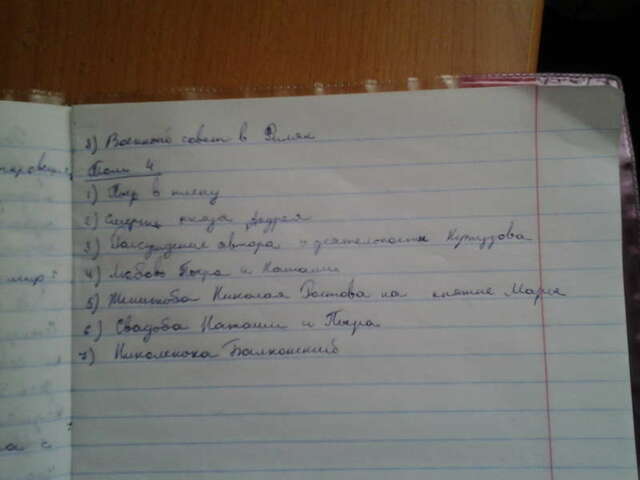 8) Военной совет в Филях
Том 4
1) Пьер в плену
2) Смерть князя Андрея
3) Рассуждение автора о деятельности Кутузова
4) Любовь Пьера и Наташи
5) Женитьба Николая Ростова на княжне Марье
6) Свадьба Наташи и Пьера
7) Николенька Балконский
мир"
а с